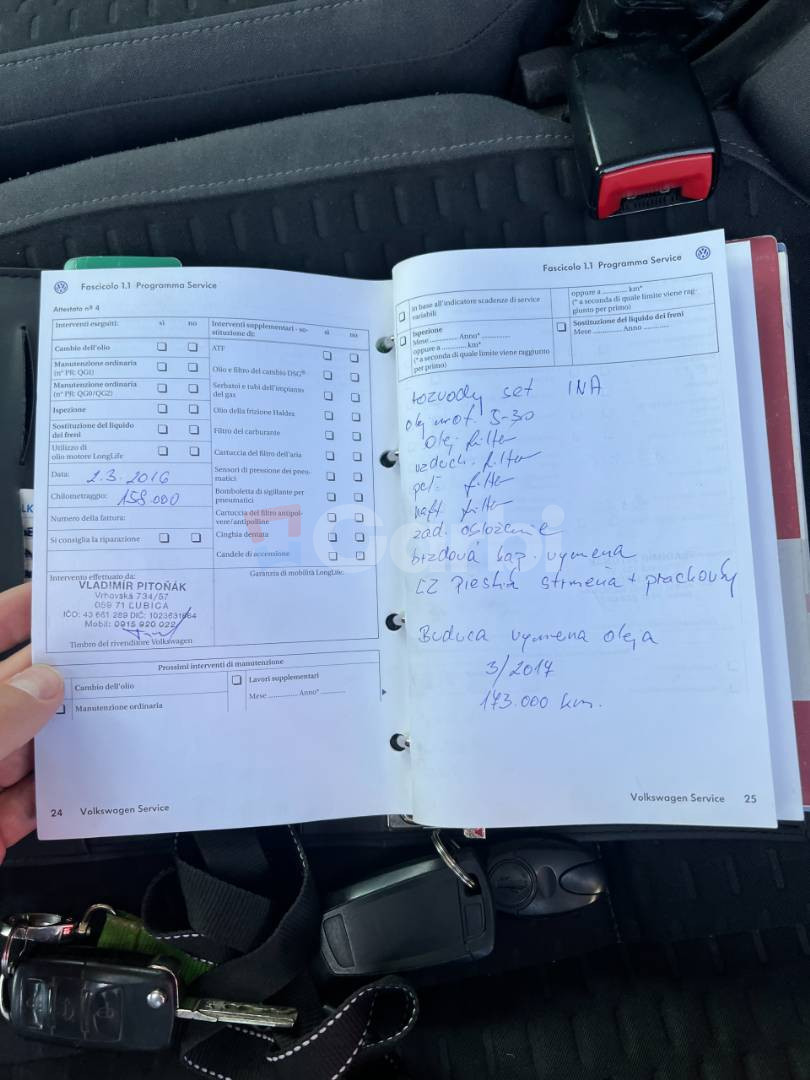 Fascicolo 1.1 Programma Service
Attestato nº 4
Interventi eseguiti: sì no
Cambio dell'olio
Manutenzione ordinaria
(nº PR: QG1)
Manutenzione ordinaria
(nº PR: QG0/QG2)
Ispezione
Sostituzione del liquido
dei freni
Utilizzo di
olio motore LongLife
Data: 2.3.2016
Chilometraggio: 158.000
Numero della fattura:
Si consiglia la riparazione
Intervento effettuato da:
VLADIMÍR PITOŇÁK
Vrbovská 734/57
059 71 ĽUBICA
IČO: 43 661 289 DIČ:
Mobil: 0915 920 022
Timbro del rivenditore Volkswagen
Interventi supplementari - so-
stituzione di: sì no
ATF
Olio e filtro del cambio DSG®
Serbatoi e tubi dell'impianto
del gas
Olio della frizione Haldex
Filtro del carburante
Cartuccia del filtro dell'aria
Sensori di pressione dei pneu-
matici
Bomboletta di sigillante per
pneumatici
Cartuccia del filtro antipol-
vere/antipolline
Cinghia dentata
Candele di accensione
Garanzia di mobilità LongLife.
Prossimi interventi di manutenzione
Cambio dell'olio
Manutenzione ordinaria
Lavori supplementari
Mese ............ Anno* ............
24 Volkswagen Service
Fascicolo 1.1 Programma Service
in base all'indicatore scadenze di service
variabili
Ispezione
Mese ............ Anno* ............
oppure a ............ km*
(* a seconda di quale limite viene raggiunto
per primo)
oppure a ............ km*
(* a seconda di quale limite viene rag-
giunto per primo)
Sostituzione del liquido dei freni
Mese ............ Anno ............
rozvody set INA
olej mot. 5-30
olej. filter
vzduch. filter
pel. filter
naft. filter
zad. obloženie
brzdová kap. vymena
LZ Piestná strmeňa + prachovky
Buduca vymena oleja
3/2017
173.000 km.
Volkswagen Service 25
Garbi